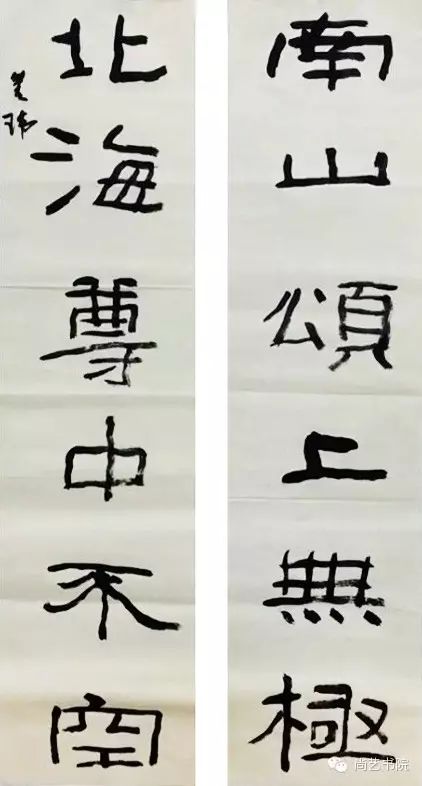 南山頌上無極
北海尊中不空
尚艺书院